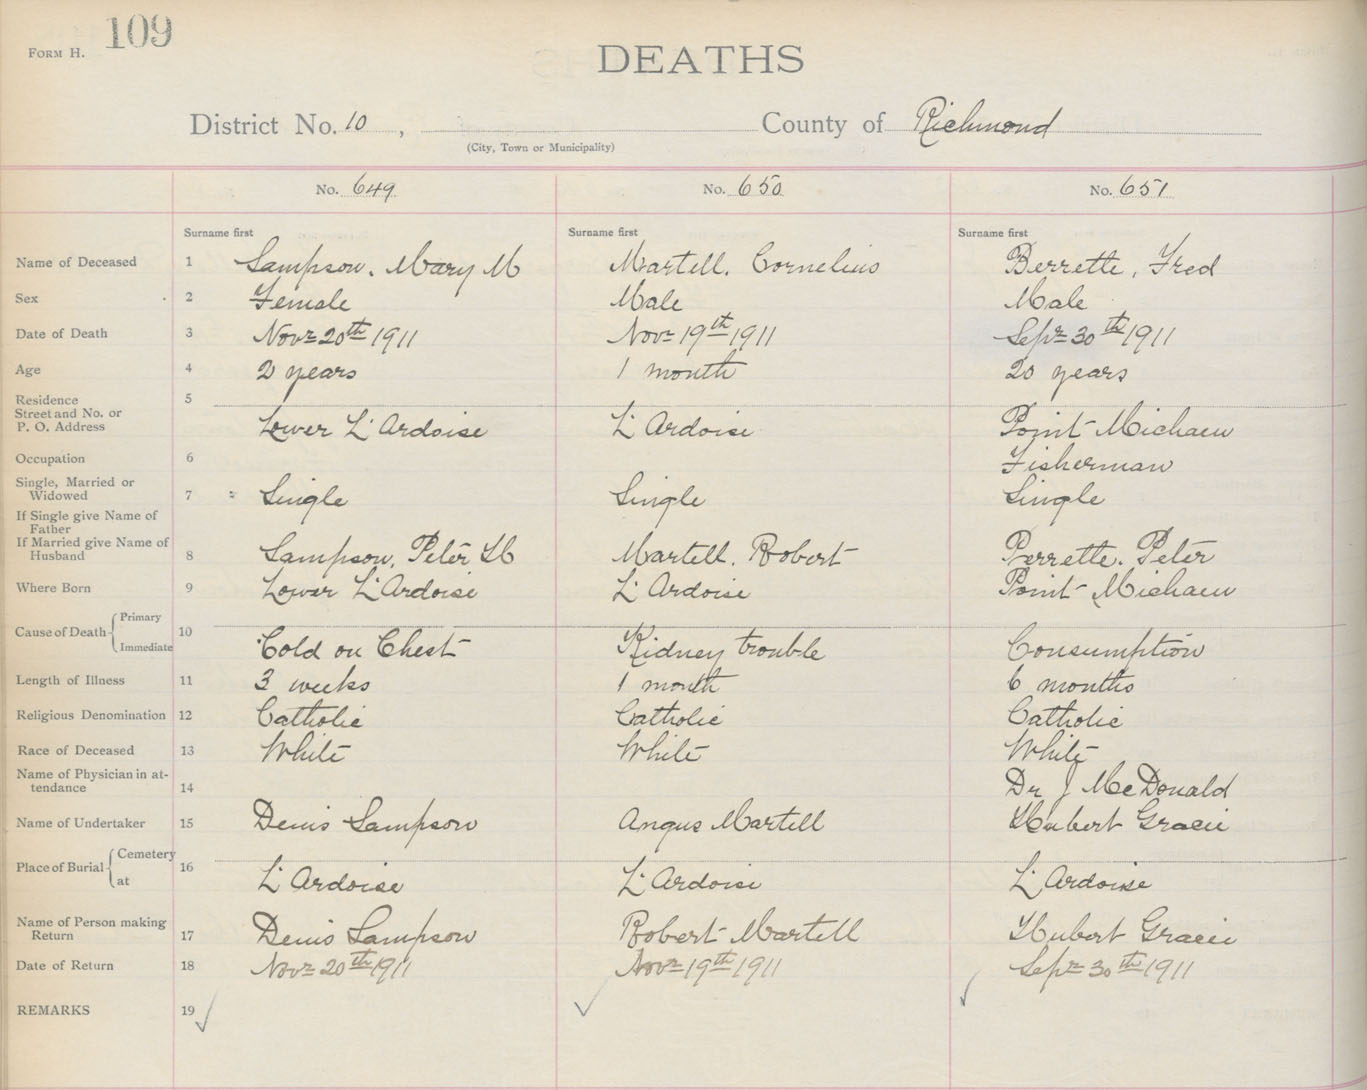 FORM H. 109
DEATHS
District No. 10 , County of Richmond
(City, Town or Municipality)
No. 649 No. 650 No. 651
Surname first Surname first Surname first
Name of Deceased 1 Sampson, Mary M Martell, Cornelius Berrette, Fred
Sex 2 Female Male Male
Date of Death 3 Novr 20th 1911 Novr 19th 1911 Sepr 30th 1911
Age 4 2 years 1 month 20 years
Residence 5
Street and No. or
P. O. Address Lower L'Ardoise L'Ardoise Point Michaew
Occupation 6 Fisherman
Single, Married or
Widowed 7 Single Single Single
If Single give Name of
Father
If Married give Name of
Husband 8 Sampson, Peter Martell, Robert Perrette, Peter
Where Born 9 Lower L'Ardoise L'Ardoise Point Michaew
Cause of Death Primary
Immediate 10 Cold on Chest Kidney trouble Consumption
Length of Illness 11 3 weeks 1 month 6 months
Religious Denomination 12 Catholic Catholic Catholic
Race of Deceased 13 White White White
Name of Physician in at-
tendance 14 Dr J McDonald
Name of Undertaker 15 Denis Sampson Angus Martell Hubert Gracie
Place of Burial Cemetery
at 16 L'Ardoise L'Ardoise L'Ardoise
Name of Person making
Return 17 Denis Sampson Robert Martell Hubert Gracie
Date of Return 18 Novr 20th 1911 Novr 19th 1911 Sepr 30th 1911
REMARKS 19